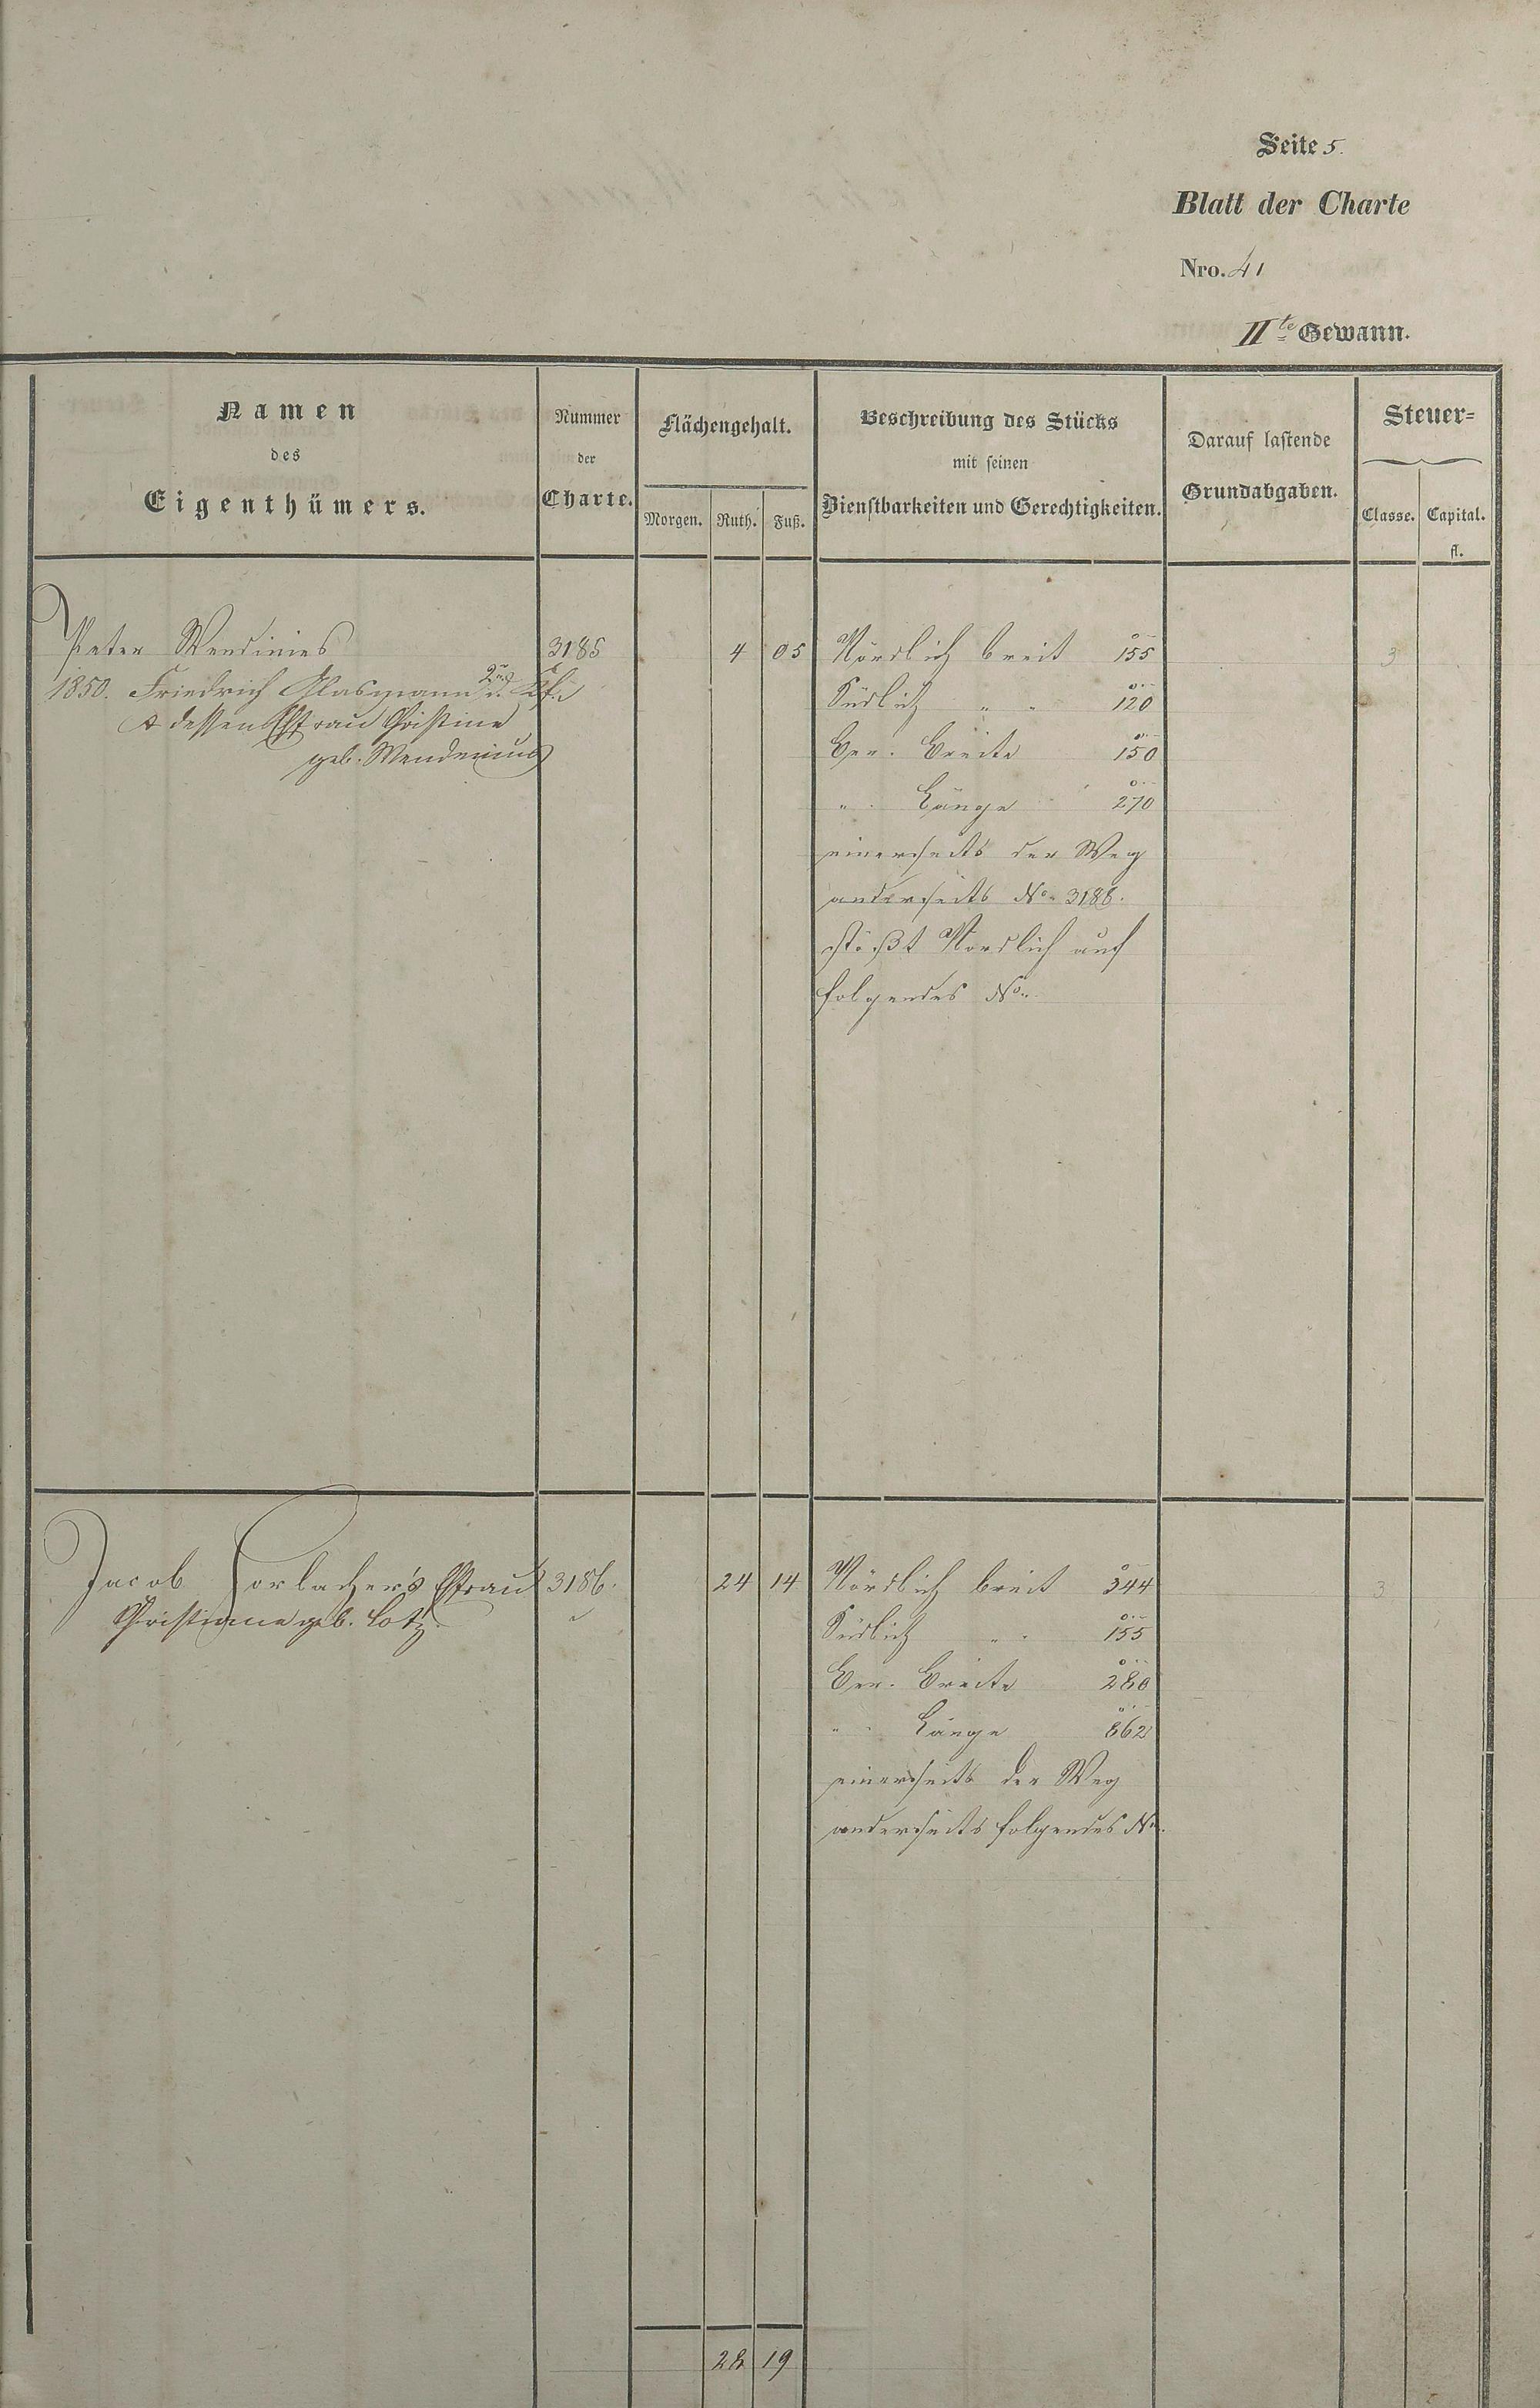 Seite 5.
Blatt der Charte
Nro. 41
IIte Gewann.
Namen
des
Eigenthümers.
Nummer
der
Charte.
Flächengehalt.
Morgen. Ruth. Fuß.
Beschreibung des Stücks
mit seinen
Dienstbarkeiten und Gerechtigkeiten.
Darauf lastende
Grundabgaben.
Steuer=
Classe. Capital.
fl.
Peter Wendinies 3185 4 05 Nördlich breit 155 3
1850. Friedrich Glasmann 2te
& dessen Ehfrau Christine
geb. Wenderius
Südlich " " 120
Ber. Breite 150
" Länge 270
einerseits der Weg
anderseits No. 3188.
stößt Nordlich auf
folgendes No.
Jacob Horlacher's Ehfrau 3186. 24 14 Nördlich breit 344 3
Christiane geb. Lotz.
Südlich " " 155
Ber. Breite 280
" Länge 862
einerseits der Weg
anderseits folgendes No.
28 19